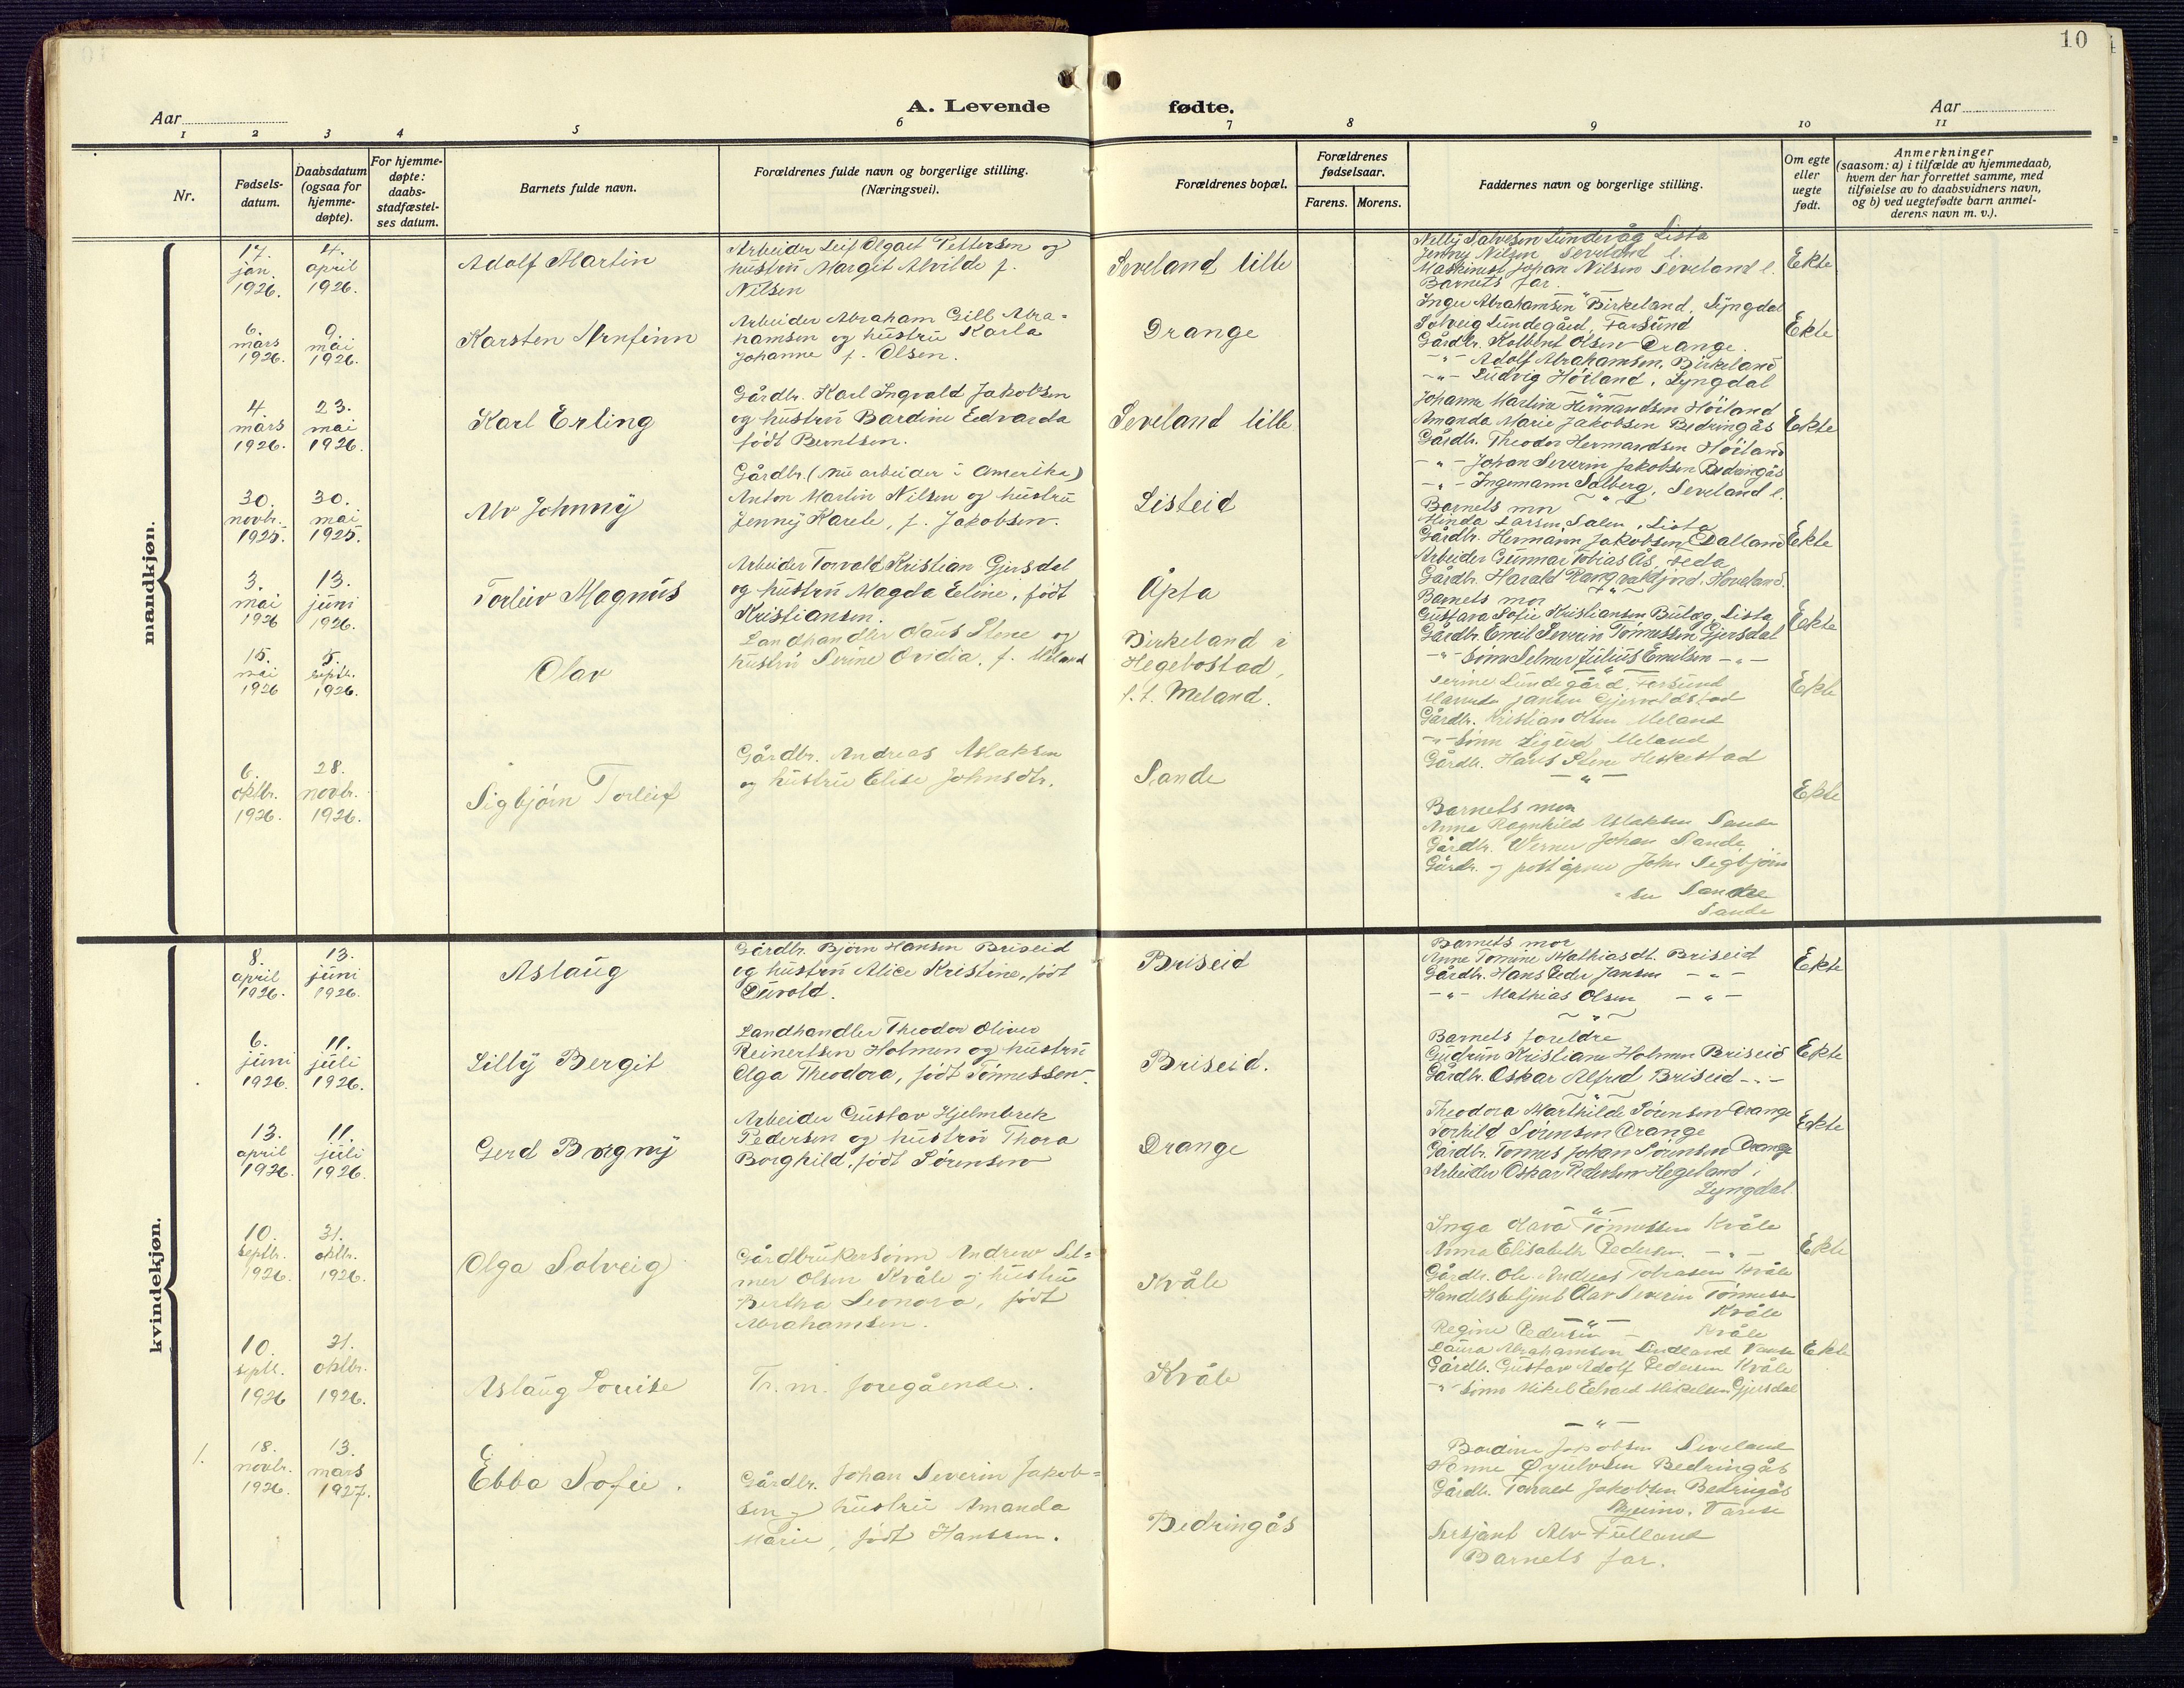 10
A. Levende fødte.
Aar
Aar
1 2 3 4 5 6 7 8 9 10 11
Nr.
Fødsels-
datum.
Daabsdatum
(ogsaa for
hjemme-
døpte).
For hjemme-
døpte:
daabs-
stadfæstel-
ses datum.
Barnets fulde navn.
Forældrenes fulde navn og borgerlige stilling.
(Næringsvei).
Forældrenes bopæl.
Forældrenes
fødselsaar.
Farens. Morens.
Faddernes navn og borgerlige stilling.
Om egte
eller
uegte
født.
Anmerkninger
(saasom: a) i tilfælde av hjemmedaab,
hvem der har forrettet samme, med
tilføielse av to daabsvidners navn,
og b) ved uegtefødte barn anmel-
derens navn m. v.).
mandkjøn.
17.
jan.
1926.
4.
april
1926.
Adolf Martin
Arbeider Leif Olgart Pettersen og
hustru Margit Alvilde f.
Nilsen
Seveland lille
Nelly Salvesen Lundevåg Lista
Jenny Nilsen Seveland l.
Maskinist Johan Nilsen Seveland l.
Barnets far.
Ekte
6.
mars
1926.
9.
mai
1926.
Karsten Arnfinn
Arbeider Abraham Gill Abra=
hamsen og hustru Karla
Johanne f. Olsen.
Drange
Inger Abrahamsen Birkeland, Lyngdal
Solveig Lundegård, Farsund
Gårdbr. Kolbent Olsen Drange.
-"- Adolf Abrahamsen, Birkeland
-"- Ludvig Höiland, Lyngdal
Ekte
4.
mars
1926.
23.
mai
1926.
Karl Erling
Gårdbr. Karl Ingvald Jakobsen
og hustru Bardine Edvarda
født Berntsen.
Seveland lille
Johanne Martine Hermandsen Höiland
Amanda Marie Jakobsen Bedringås
Gårdbr. Theodor Hermandsen Höiland
-"- Johan Severin Jakobsen Bedringås
-"- Ingemann Solberg, Seveland l.
Ekte
30.
novbr.
1925.
30.
mai
1925.
Alv Johnny
Gårdbr. (nu arbeider i Amerika)
Anton Martin Nilsen og hustru
Jenny Karele, f. Jakobsen.
Listeid
Barnets mor
Minda Larsen, Salen, Lista
Gårdbr. Hermann Jakobsen Dalland
Arbeider Gunnar Tobias Ås, Feda
Gårdbr. Harald Rangvaldfjord, Hoveland.
Ekte
3.
mai
1926
13.
juni
1926.
Torleiv Magnus
Arbeider Torvald Kristian Gjersdal
og hustru Magda Eline, født
Kristiansen.
Åpta
Barnets mor
Gustava Sofie Kristiansen Buleg, Lista
Gårdbr. Emil Severin Tönnessen Gjersdal
-"- sönn Selmer Julius Emilsen -"-
Ekte
15.
mai
1926
5.
septr.
1926.
Olav
Landhandler Olaus Stene og
hustru Serine Ovidia, f. Meland
Birkeland i
Hegebostad,
f. t. Meland.
Serine Lundegård, Farsund
Jansen Gjervoldstad
Gårdbr. Kristian Olsen Meland
-"- sönn Sigurd Meland
Gårdbr. Hans Stene Heskestad
Ekte
6.
oktbr.
1926.
28.
novbr.
1926.
Sigbjörn Torleif
Gårdbr. Andreas Aslaksen
og hustru Elise Johnsdtr.
Sande
Barnets mor
Anna Ragnhild Aslaksen Sande
Gårdbr. Werner Johan Sande,
Gårdbr. og poståpner John Segbjörn
=sen Sande
Sande
Ekte
kvindekjøn.
8.
april
1926.
13.
juni
1926.
Aslaug
Gårdbr. Björn Hansen Briseid
og hustru Alice Kristine, født
Duvold.
Briseid
Barnets mor
Anne Tomine Mathiasdt. Briseid
Gårdbr. Hans Peder Jansen -"-
-"- Mathias Olsen -"-
Ekte
6.
juni
1926.
11.
juli
1926.
Lilly Bergit
Landhandler Theodor Oliver
Reinertsen Holmen og hustru
Olga Theodora, født Tönnessen.
Briseid.
Barnets foreldre
Gudrun Kristiane Holmen Briseid
Gårdbr. Oskar Alfred Briseid -"-
Ekte
13.
april
1926.
11.
juli
1926.
Gerd Borgny
Arbeider Gustav Hjelmbrek
Pedersen og hustru Thora
Borghild, født Sörensen
Drange
Theodora Marthilde Sörensen Drange
Torhild Sörensen Drange
Gårdbr. Tomas Johan Sörensen Drange
Arbeider Oskar Pedersen Hegeland,
Lyngdal.
Ekte
10.
septbr.
1926.
31.
oktbr.
1926.
Olga Solveig
Gårdbrukersönn Andrew Sel=
mer Olsen Kvåle og hustru
Bertha Leonora, født
Abrahamsen.
Kvåle
Inga Olava Tönnessen Kvåle
Anna Elisabeth Pedersen. -"-
Gårdbr. Ole Andreas Tobiasen Kvåle
Handelsbetjent Olav Severin Tönnessen
Kvåle
Ekte
10.
septr.
1926
31.
oktbr.
1926.
Aslaug Lovise
Tv. m. foregående.
Kvåle
Regine Pedersen Kvåle
Laura Abrahamsen Lindland Vanse
Gårdbr. Gustav Adolf Pedersen Kvåle
-"- sönn Mikel Edvard Mikelsen Gjersdal
Ekte
1.
18.
novbr.
1926.
13.
mars
1927.
Ebba Sofie.
Gårdbr. Johan Severin Jakob=
sen og hustru Amanda
Marie, født Hanssen.
Bedringås
Bardine Jakobsen Seveland
Bedringås
Gårdbr. Torvald Jakobsen Bedringås
Vanse
Sersjant Alv Fulland
Barnets far.